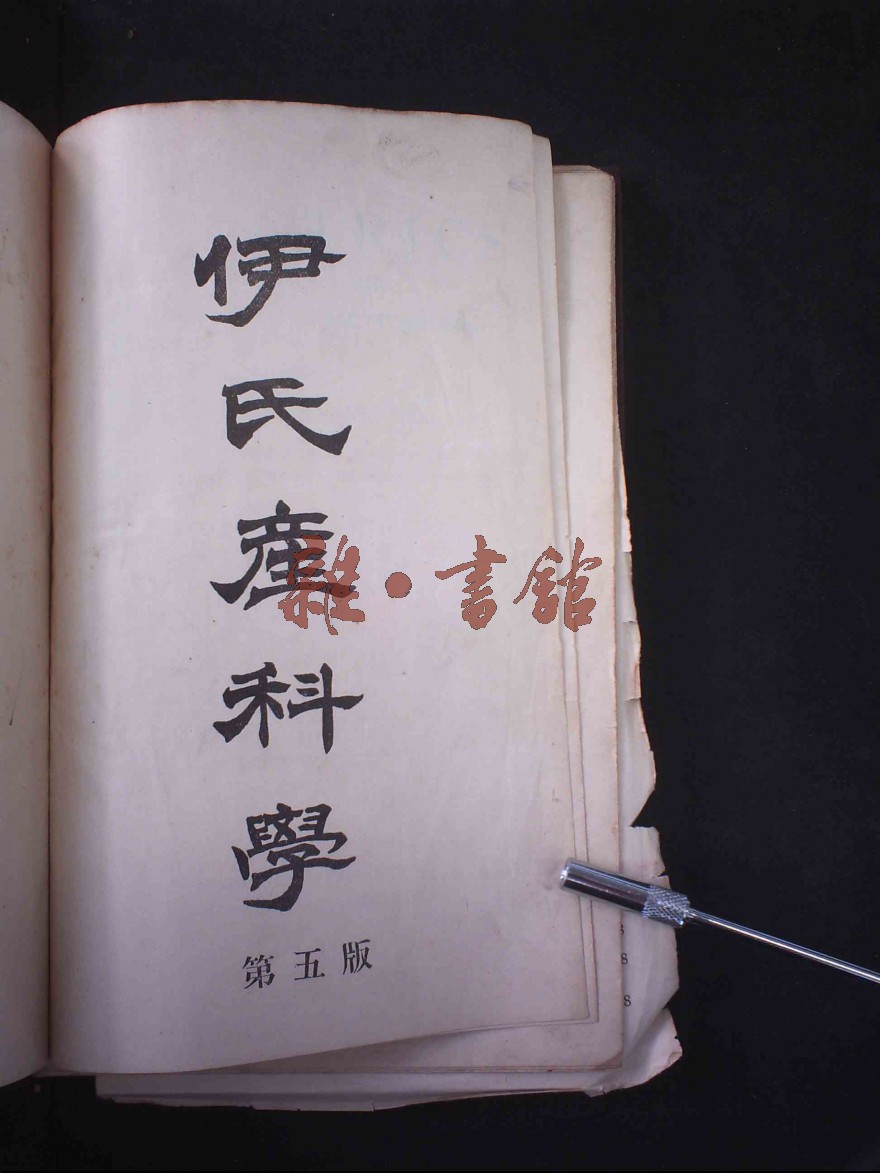 伊氏產科學
第五版
雜·書館
8
8